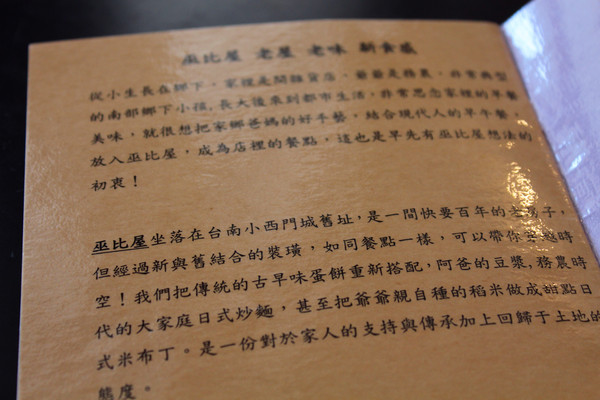 巫比屋 老屋 老味 新食感
從小生長在鄉下，家裡是開雜貨店，爺爺是務農，非常典型
的南部鄉下小孩，長大後來到都市生活，非常思念家裡的早餐
美味，就很想把家鄉爸媽的好手藝，結合現代人的早午餐，
放入巫比屋，成為店裡的餐點，這也是早先有巫比屋想法的
初衷！
巫比屋坐落在台南小西門城舊址，是一間快要百年的老房子，
但經過新與舊結合的裝璜，如同餐點一樣，可以帶你穿越時
空！我們把傳統的古早味蛋餅重新搭配，阿爸的豆漿，務農時
代的大家庭日式炒麵，甚至把爺爺親自種的稻米做成甜點日
式米布丁。是一份對於家人的支持與傳承加上回歸于土地的
態度。